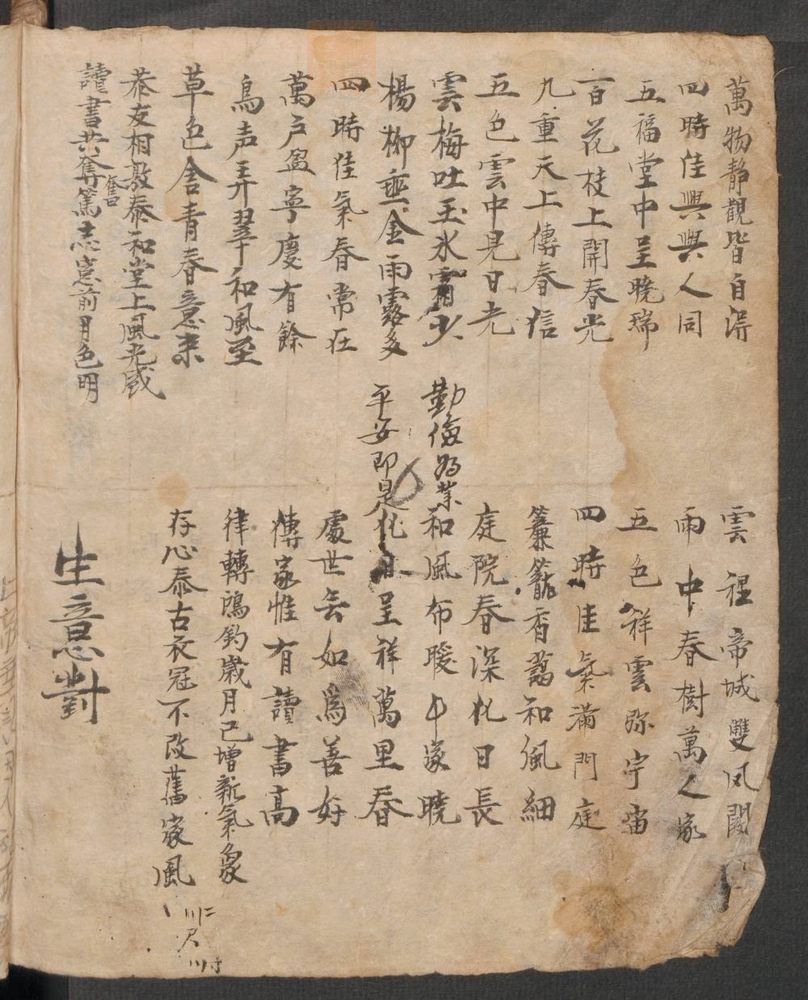 萬物靜觀皆自得
四時佳興與人同
五福堂中呈曉瑞
百花枝上開春光
九重天上傳春信
五色雲中見日光
雲梅吐玉氷霜少
楊柳垂金雨露多
四時佳氣春常在
萬户盈寧慶有餘
鳥声弄翠和風至
草色含青春意来
恭友相敬泰和堂上風光盛
讀書共奪篤志窓前月色明
奮
勤儉為業
平安即是
雲裡帝城雙凤闕
雨中春樹萬人家
五色祥雲弥宇宙
四時佳氣滿門庭
簾籠香靄和風細
庭院春深化日長
和風布暖千家曉
化日呈祥萬里春
處世無如爲善好
傳家惟有讀書高
律轉鴻鈞歲月已增新氣象
存心泰古衣冠不改舊家風
生意對